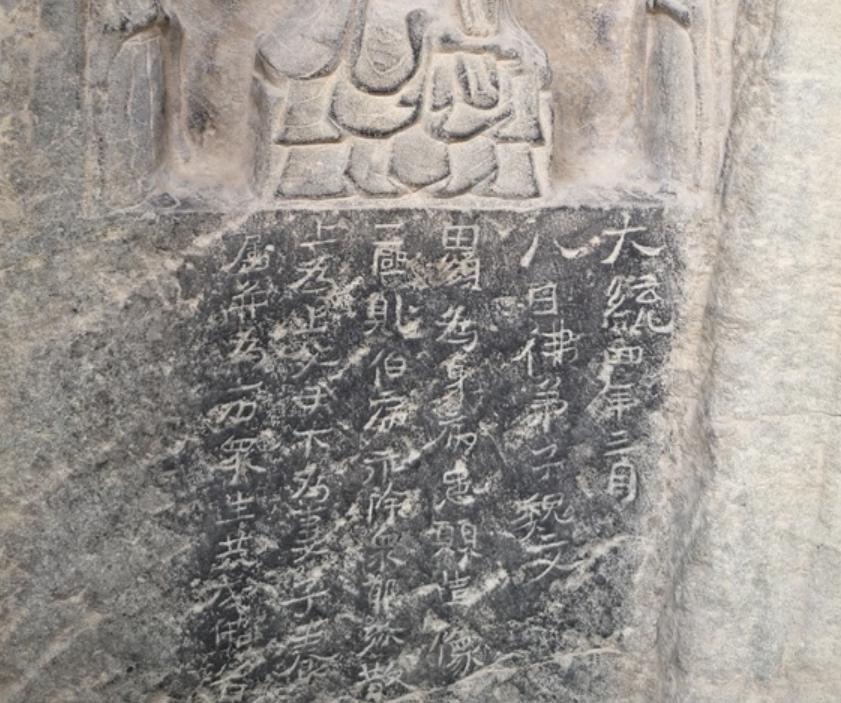 大統四年三月
八日佛弟子魏文
男為身病患願造像
一區此伯病永除眾耶弥散
上為亡父母下為妻子眷
屬并為一切眾生共成佛